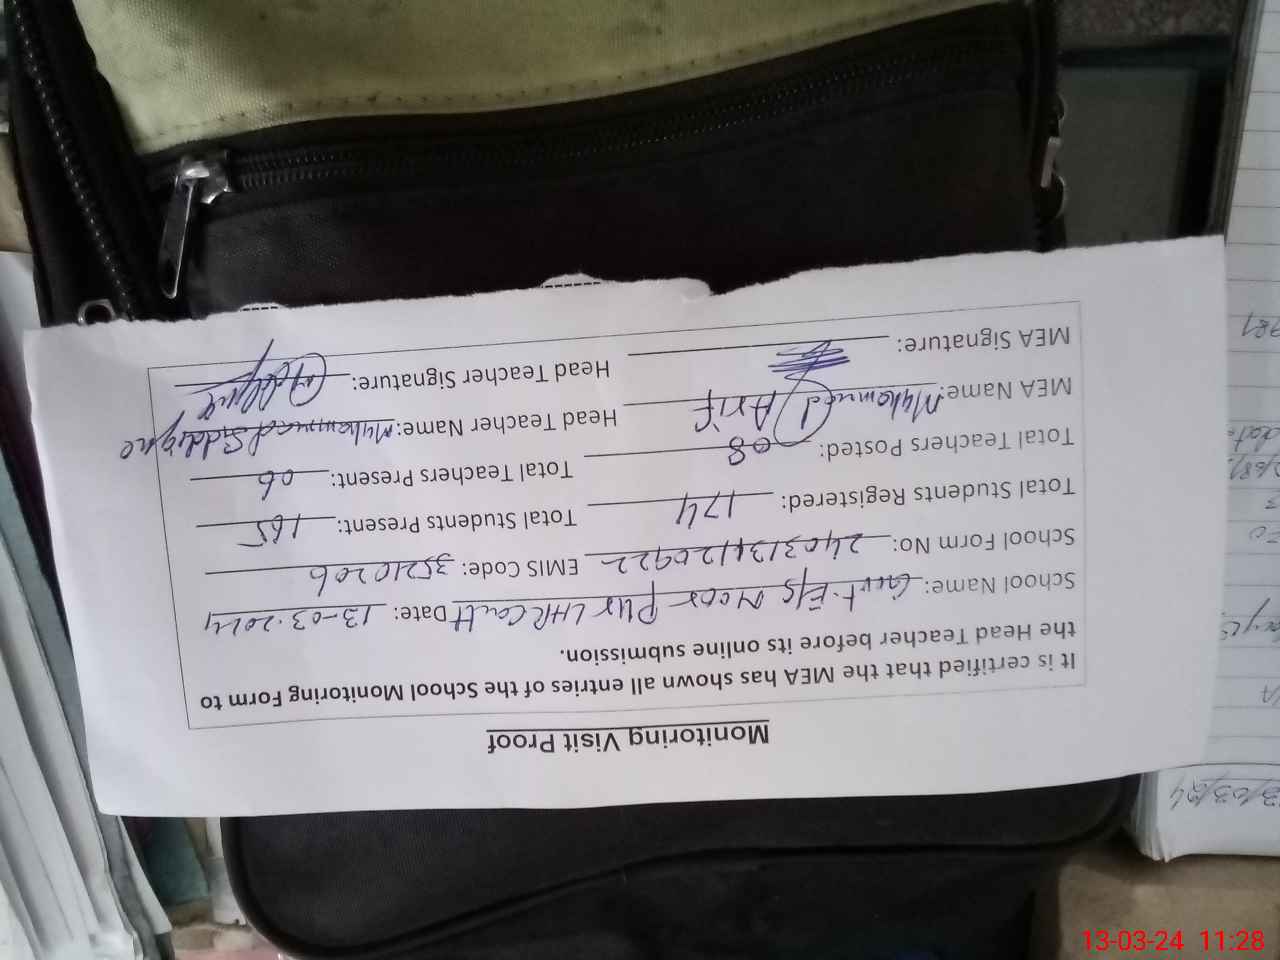 Monitoring Visit Proof
It is certified that the MEA has shown all entries of the School Monitoring Form to
the Head Teacher before its online submission.
School Name: Govt. E/S Noor Pur LHR Cantt Date: 13-03-2024
School Form No: 2403134120922 EMIS Code: 35210206
Total Students Registered: 174 Total Students Present: 165
Total Teachers Posted: 08 Total Teachers Present: 06
MEA Name: Muhammad Arif Head Teacher Name: Muhammad Siddique
MEA Signature: Head Teacher Signature:
3/03/24
13-03-24 11:28